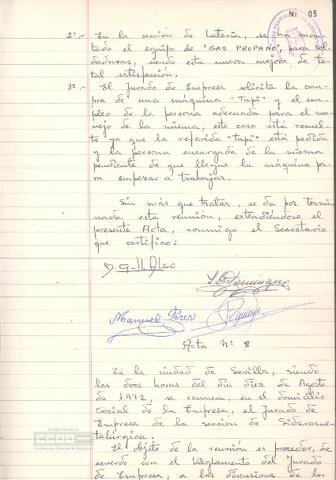 Nº 05
2º.- En la sección de Lutería, se ha mon-
tado el equipo de "GAS PROPANO", para sol-
daduras, siendo esta nueva mejora de to-
tal satisfacción.
3º.- El Jurado de Empresa solicita la com-
pra de una máquina "Tupi" y el em-
pleo de la persona adecuada para el ma-
nejo de la misma, este caso está resuel-
to ya que la referida "Tupi" está pedida
y la persona encargada de la misma
pendiente de que llegue la máquina pa-
ra empezar a trabajar.
Sin más que tratar, se da por termi-
nada esta reunión, extendiéndose el
presente Acta, conmigo el Secretario
que certifico:
Domínguez
Manuel Pérez
Acta Nº 8
En la ciudad de Sevilla, siendo
las doce horas del día diez de Agosto
de 1972, se reunen, en el domicilio
Social de la Empresa, el Jurado de
Empresa de la sección de Siderome-
talúrgica.
El objeto de la reunión es proceder, de
acuerdo con el Reglamento del Jurado
de Empresa, a las
CCOO